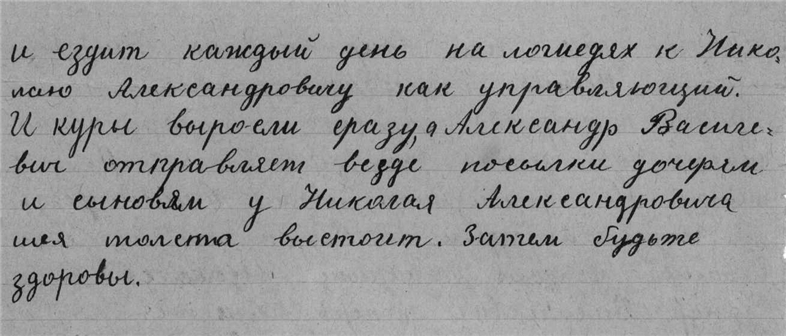 и ездит каждый день на лошедях к Нико-
лаю Александровичу как управляющий.
И куры выросли сразу, а Александр Василе-
вич отправляет везде посылки дочерям
и сыновям у Николая Александровича
шея толста выстоит. Затем будьте
здоровы.